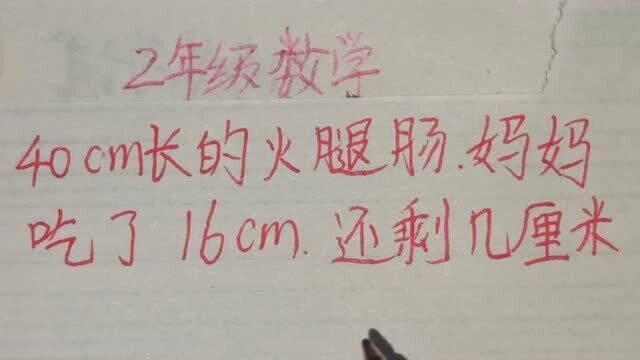 2年级数学
40cm长的火腿肠.妈妈
吃了16cm.还剩几厘米